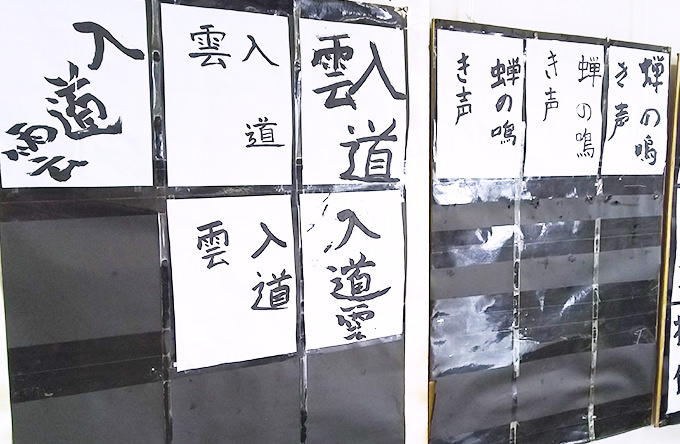 蝉の鳴
き声
蝉の鳴
き声
蝉の鳴
き声
入道
雲
入道
雲
入道
雲
入道雲
入道
雲